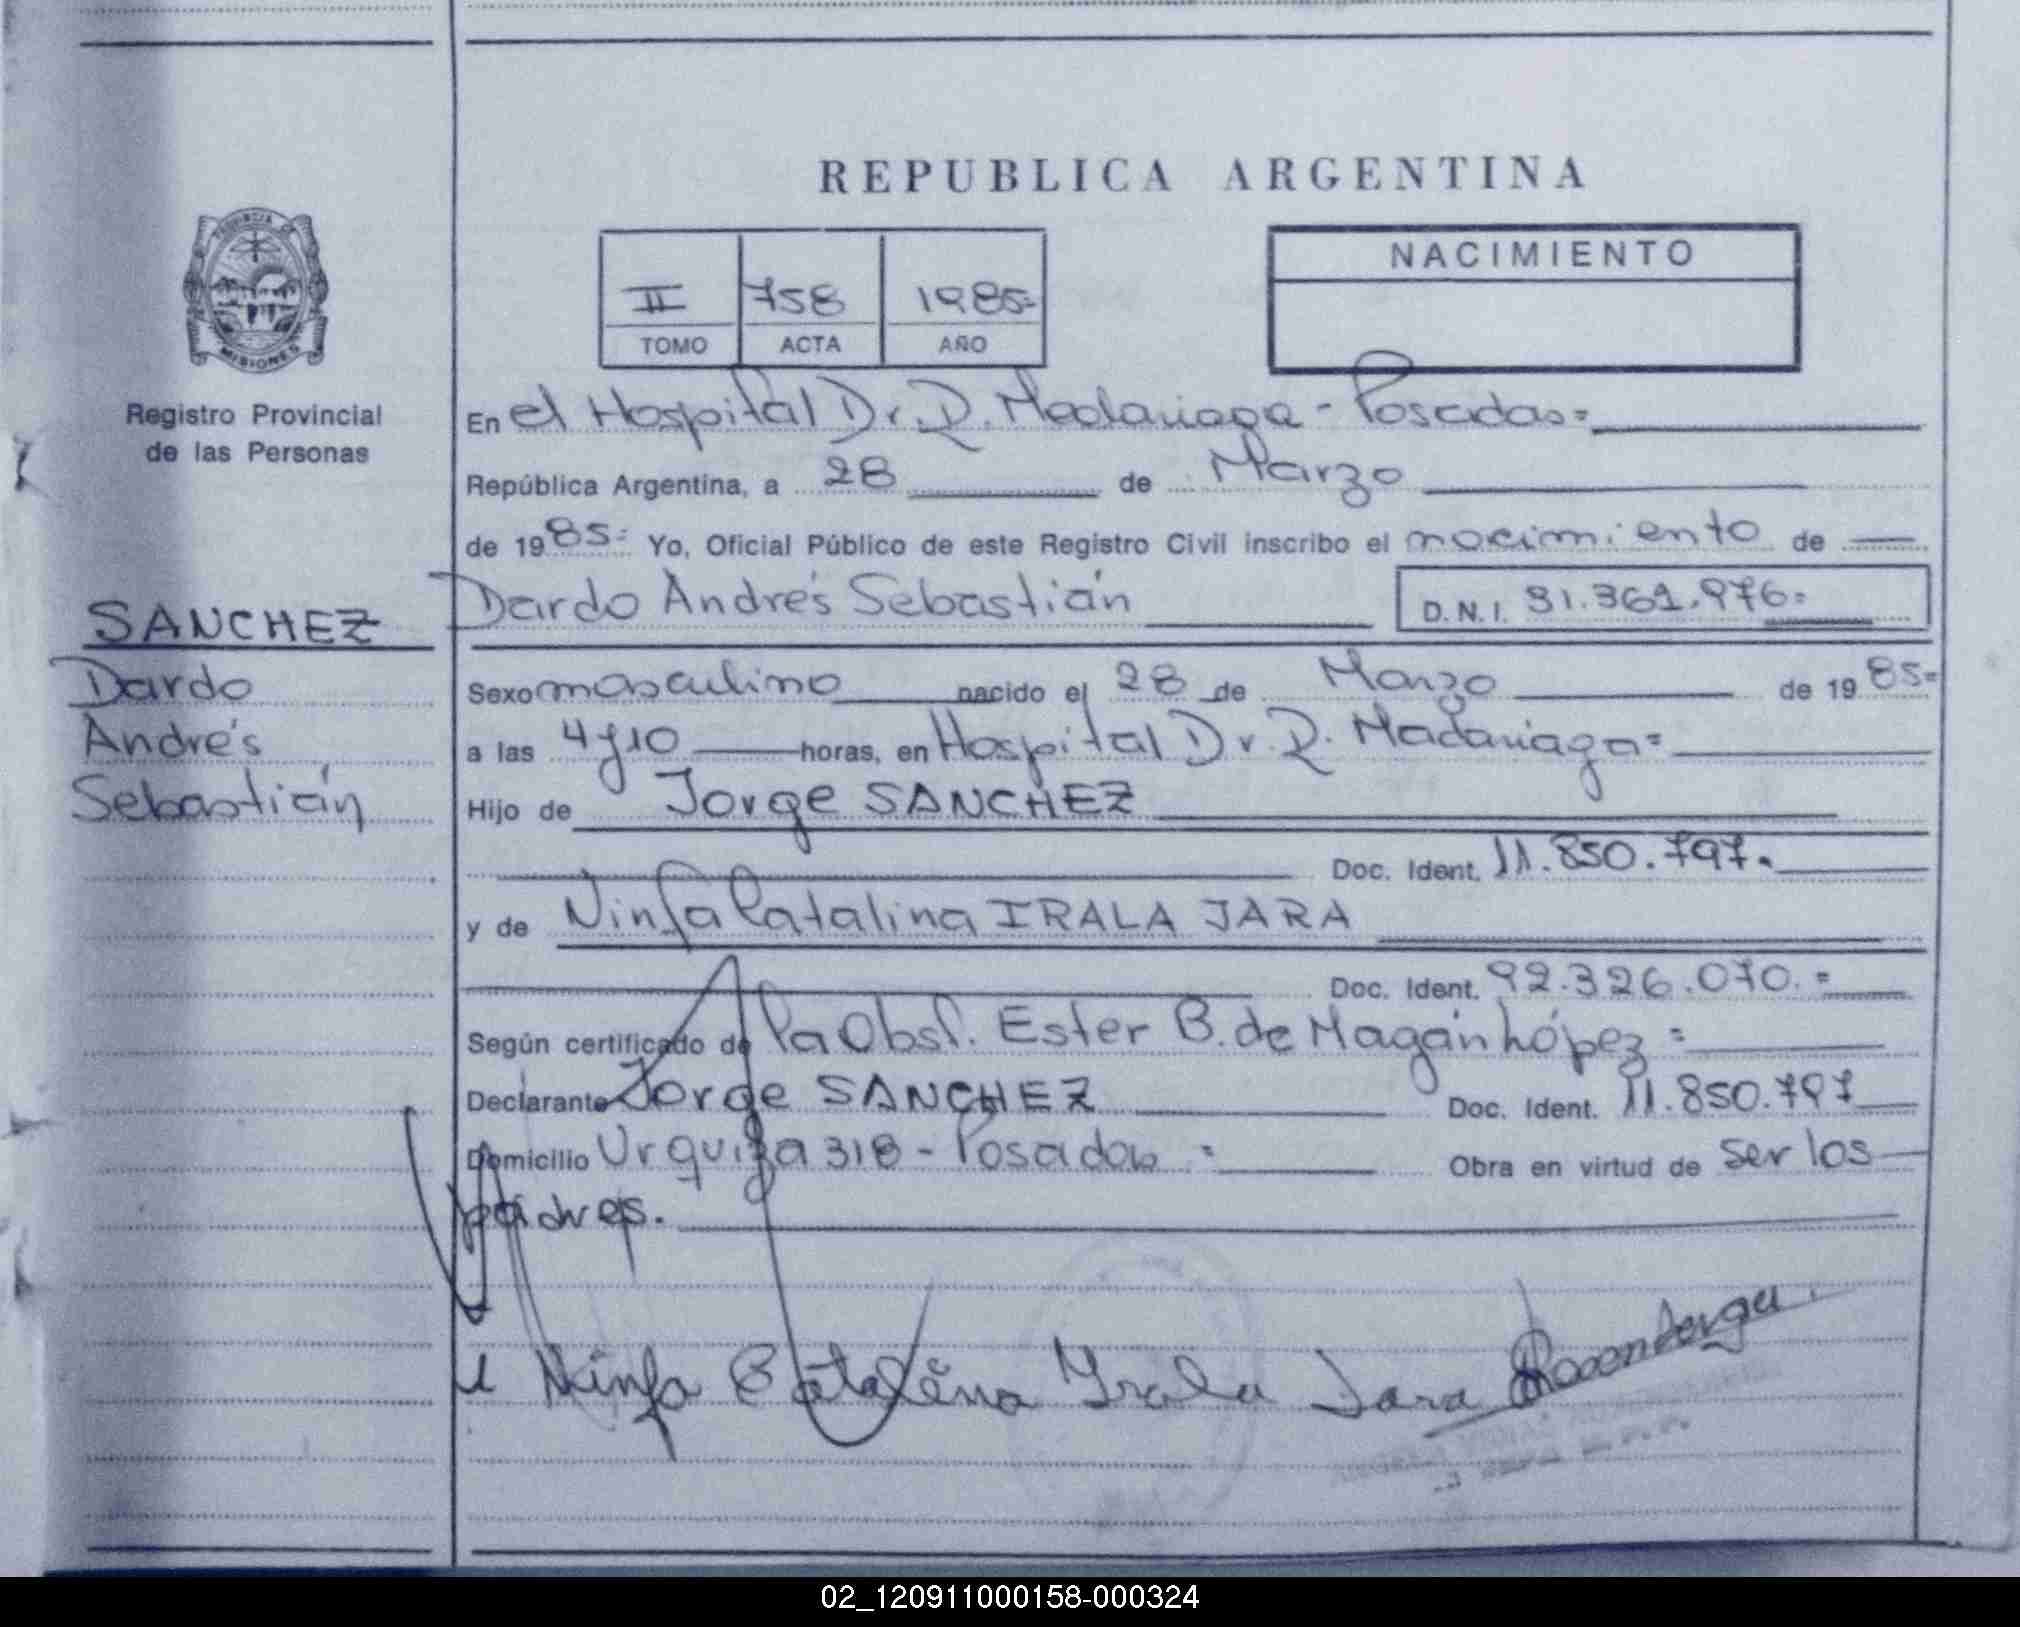 REPUBLICA ARGENTINA
NACIMIENTO
II 758 1985=
TOMO ACTA AÑO
PROVINCIA DE
MISIONES
Registro Provincial
de las Personas
SANCHEZ
Dardo
Andrés
Sebastián
En el Hospital Dr. R. Madariaga - Posadas=
República Argentina, a 28 de Marzo
de 1985= Yo, Oficial Público de este Registro Civil inscribo el nacimiento de
Dardo Andrés Sebastián D.N.I. 31.361.976=
Sexo masculino nacido el 28 de Marzo de 1985=
a las 4 y 10 horas, en Hospital Dr. R. Madariaga=
Hijo de Jorge SANCHEZ
Doc. Ident. 11.850.797.
y de Ninfa Catalina IRALA JARA
Doc. Ident. 92.326.070.=
Según certificado de la Obst. Ester B. de Magán López=
Declarante Jorge SANCHEZ Doc. Ident. 11.850.797
Domicilio Urquiza 318 - Posadas.= Obra en virtud de ser los
padres.
Ninfa Catalina Yrala Jara
02_120911000158-000324